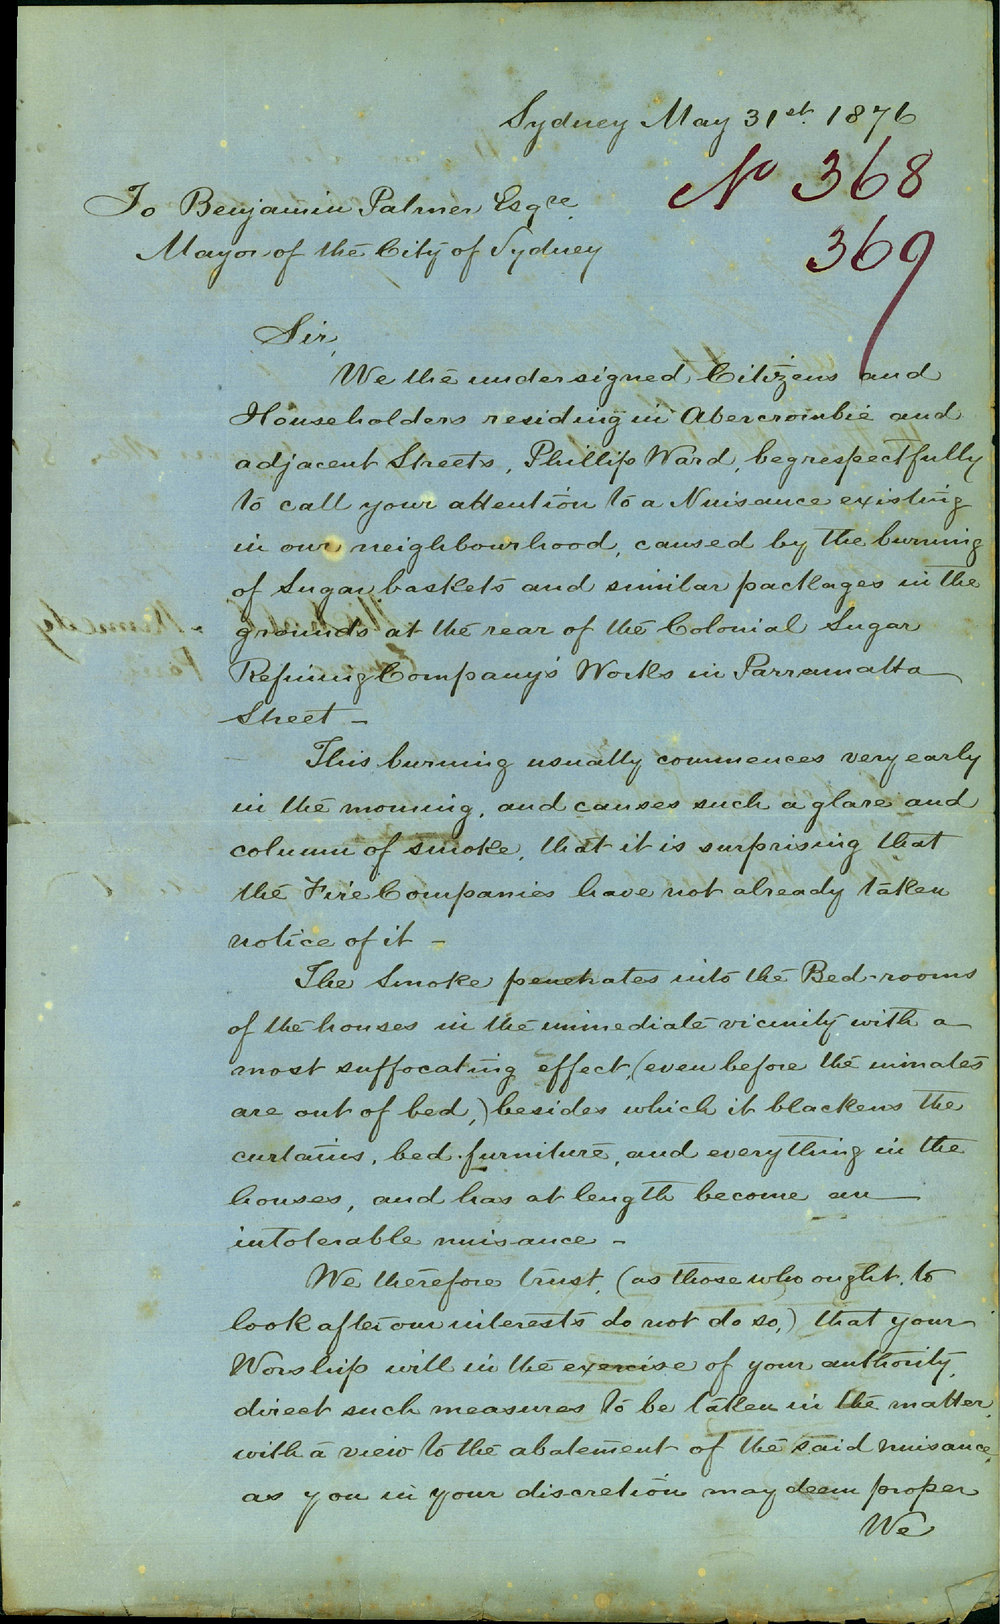 Sydney May 31st. 1876
No 368
369
To Benjamin Palmer Esqre.
Mayor of the City of Sydney
Sir,
We the undersigned, Citizens and
Householders residing in Abercrombie and
adjacent Streets, Phillip Ward, beg respectfully
to call your attention to a Nuisance existing
in our neighbourhood, caused by the burning
of Sugar baskets and similar packages in the
grounds at the rear of the Colonial Sugar
Refining Company's Works in Parramatta
Street -
This burning usually commences very early
in the morning, and causes such a glare and
column of smoke, that it is surprising that
the Fire Companies have not already taken
notice of it -
The Smoke penetrates into the Bed-rooms
of the houses in the immediate vicinity with a
most suffocating effect, (even before the inmates
are out of bed,) besides which it blackens the
curtains, bed-furniture, and everything in the
houses, and has at length become an
intolerable nuisance -
We therefore trust, (as those who ought to
look after our interests do not do so,) that your
Worship will in the exercise of your authority,
direct such measures to be taken in the matter,
with a view to the abatement of the said nuisance,
as you in your discretion may deem proper
We